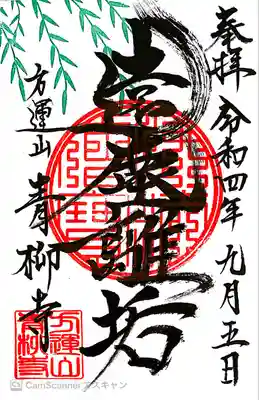 奉拝 令和四年 九月五日
遠塵離垢
方運山 青柳寺
方運山
青柳寺
CamScanner でスキャン